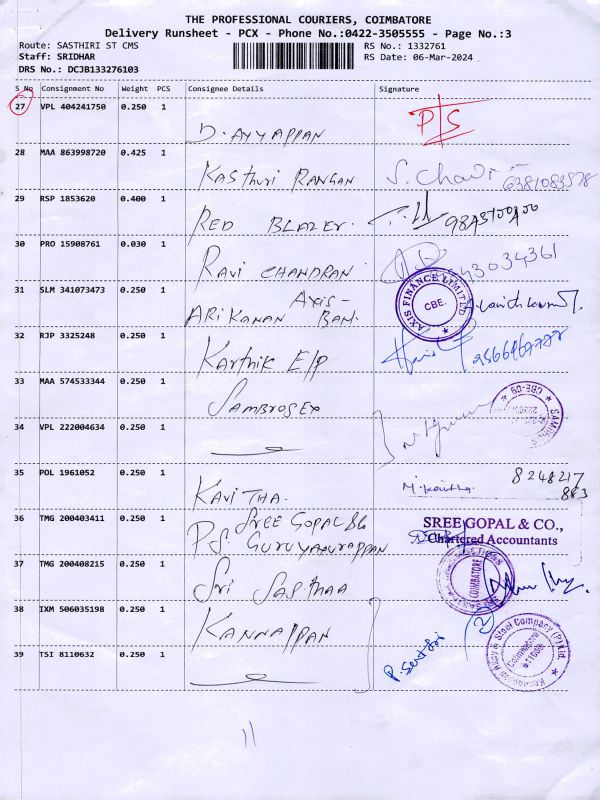 THE PROFESSIONAL COURIERS, COIMBATORE
Delivery Runsheet - PCX - Phone No.:0422-3505555 - Page No.:3
Route: SASTHIRI ST CMS RS No.: 1332761
Staff: SRIDHAR RS Date: 06-Mar-2024
DRS No.: DCJB133276103
S No Consignment No Weight PCS Consignee Details Signature
27 VPL 404241750 0.250 1 P/S
D. AYYAPPAN
28 MAA 863998720 0.425 1
KASTHURI RANGAN
29 RSP 1853620 0.400 1
RED BLAZER.
30 PRO 15908761 0.030 1
RAVI CHANDRAN
31 SLM 341073473 0.250 1 AXIS FINANCE LIMITED CBE.
ARIKANAN AXIS-BAN.
32 RJP 3325248 0.250 1
Karthik E/P
33 MAA 574533344 0.250 1 CBE-09
SAMBROSEX
34 VPL 222004634 0.250 1
35 POL 1961052 0.250 1 8248217
KAVITHA. M. Kavitha 883
36 TMG 200403411 0.250 1 SREE GOPAL & CO.,
SREE GOPAL &
P.S. GURUYAAURAPPAN Chartered Accountants
37 TMG 200408215 0.250 1 COIMBATORE
Sri SASTHAA
38 IXM 506035198 0.250 1
KANNAPPAN Kannappan Alloy & Steel Company (P) Ltd. Coimbatore
39 TSI 8110632 0.250 1
11